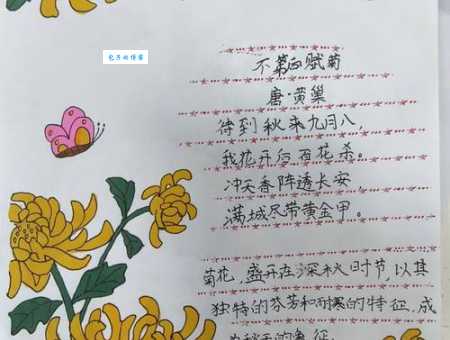 不第后赋菊
唐·黄巢
待到秋来九月八，
我花开后百花杀。
冲天香阵透长安，
满城尽带黄金甲。
菊花，盛开在深秋时节，以其
独特的芬芳和耐寒的特征，成
为秋天的象征。